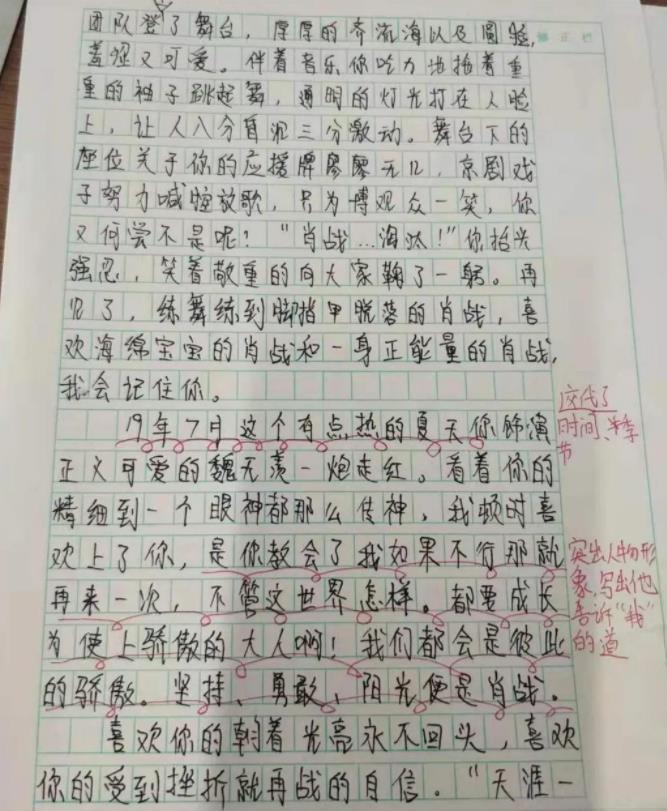 团队登了舞台，厚厚的齐流海以及圆脸，
羞涩又可爱。伴着音乐你吃力地抬着重
重的袖子跳起舞，通明的灯光打在人脸
上，让人八分自泥三分激动。舞台下的
座位关于你的应援牌廖廖无几，京剧戏
子努力喊放歌，只为博观众一笑，你
又何尝不是呢！“肖战...淘汰！”你抬头
强忍，笑着敬重的向大家鞠了一躬。再
见了，练舞练到脚指甲脱落的肖战，喜
欢海绵宝宝的肖战和一身正能量的肖战，
我会记住你。
19年7月这个有点热的夏天你饰演
正义可爱的魏无羡一炮走红。看着你的
精细到一个眼神都那么传神，我顿时喜
欢上了你，是你教会了我如果不行那就
再来一次，不管这世界怎样。都要成长
为使上骄傲的大人啊！我们都会是彼此
的骄傲。坚持、勇敢、阳光便是肖战。
喜欢你的朝着光亮永不回头，喜欢
你的受到挫折就再战的自信。“天涯一
交代了
时间、季
节
突出人物形
象，写出他
告诉“我”
的道